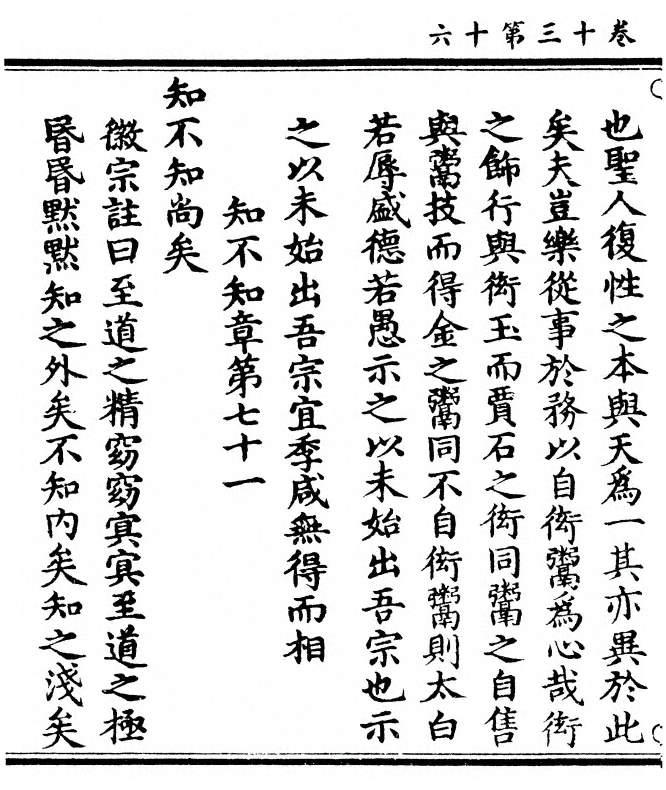 卷十三第十六
也聖人復性之本與天爲一其亦異於此
矣夫豈樂從事於務以自衒鬻爲心哉衒
之飾行與衒玉而賈石之衒同鬻之自售
與鬻技而得金之鬻同不自衒鬻則太白
若辱盛德若愚示之以未始出吾宗也示
之以未始出吾宗宜季咸無得而相
知不知章第七十一
知不知尚矣
徽宗註曰至道之精窈窈冥冥至道之極
昬昬默默知之外矣不知内矣知之淺矣